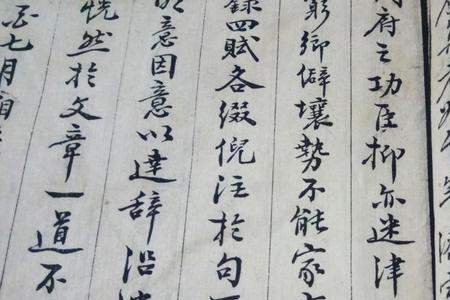 府之功臣抑亦迷津
窮鄉僻壤勢不能家
錄四賦各綴倪注於句
意因意以達辞沿
恍然於文章一道不
七月